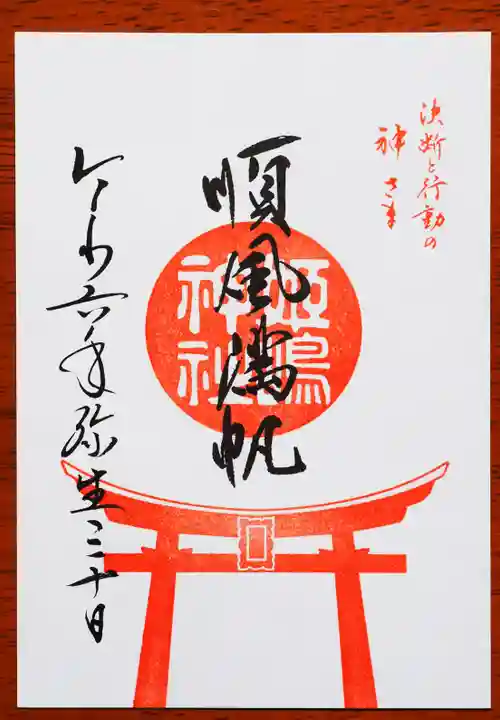 決断と行動の
神さま
順風満帆
姫嶋
神社
令和六年弥生三十日